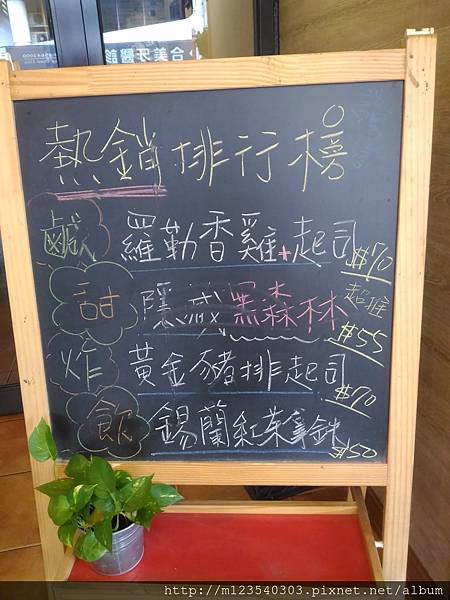 合美牙醫診
熱銷排行榜
鹹 羅勒香雞+起司 $70
甜 隱藏黑森林 超推 $55
炸 黃金豬排起司 $70
飲 錫蘭紅茶拿鉄 $50
http://m123540303.pixnet.net/album